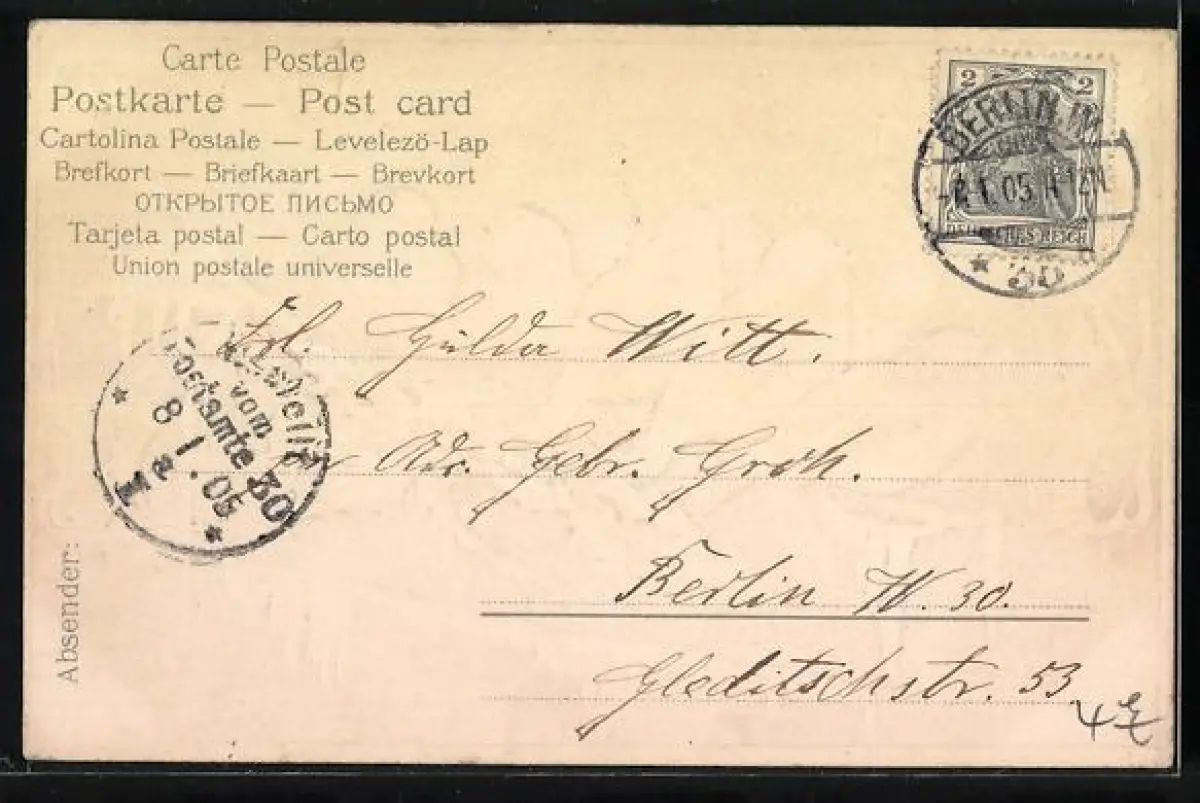 Carte Postale
Postkarte — Post card
Cartolina Postale — Levelező-Lap
Brefkort — Briefkaart — Brevkort
ОТКРЫТОЕ ПИСЬМО
Tarjeta postal — Carto postal
Union postale universelle
2 2
BERLIN W.
1. 05.
DEUTSCHES REICH
* 30
Frl. Hulda Witt.
Bestellt
vom
Postamte 30
8 1 . 05
a
I
Adr. Gebr. Groh.
Berlin W. 30.
Gleditschstr. 53.
4
Absender: